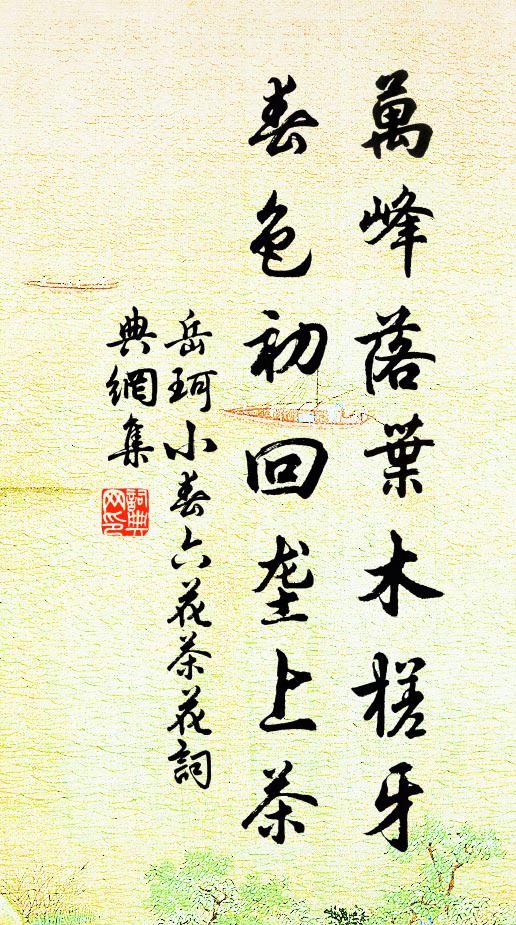 萬峰落葉木槎牙
春色初回垄上茶
岳珂小春六花茶花詞
典網集
詞典
网印